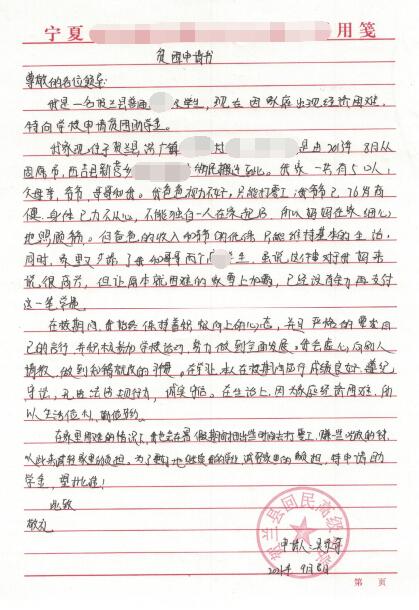 宁夏 用笺
贫困申请书
尊敬的各位领导:
我是一名贺兰县普通 大学生,现在因家庭出现经济困难,
特向学校申请贫困助学金。
我家现住于贺兰县,洪广镇 村 是由2013年8月从
固原市,西吉县新营乡 搬迁至此。我家一共有5口人,
父母亲,爷爷,哥哥和我。我爸爸视力不好,只能打零工,我爷爷已76岁高
健,身体已力不从心,不能独自一人在家吃住,所以妈妈在家细心
地照顾爷爷。但爸爸的收入和爷爷的低保只能维持基本的生活,
同时,家里又多了我和哥哥两个 学生,虽说这件事对于爸妈来
说,很高兴,但让原本就困难的家雪上加霜,已经没有能力再支付
这一笔学费。
在校期间,我始终保持着积极向上的心态,并且严格的要求自
己的言行,并积极参加学校活动,努力做到全面发展。我会虚心向别人
请教,做到
在学习上,本人在校期间 成绩良好,遵纪
守法,无违法违规行为,诚实守信。在生活上,因为家庭经济困难,所
以生活俭朴,勤俭节约。
在家里困难的情况下,我也会在暑假期间抽出些时间去打零工,赚一些 的钱,
以此来减轻家里的负担。为了 地继续我的学业,减轻家里的负担,特申请助
学金,望批准!
此致
敬礼
申请人:吴
2014年 9月 8日
贺兰县回民高级中学
第 页